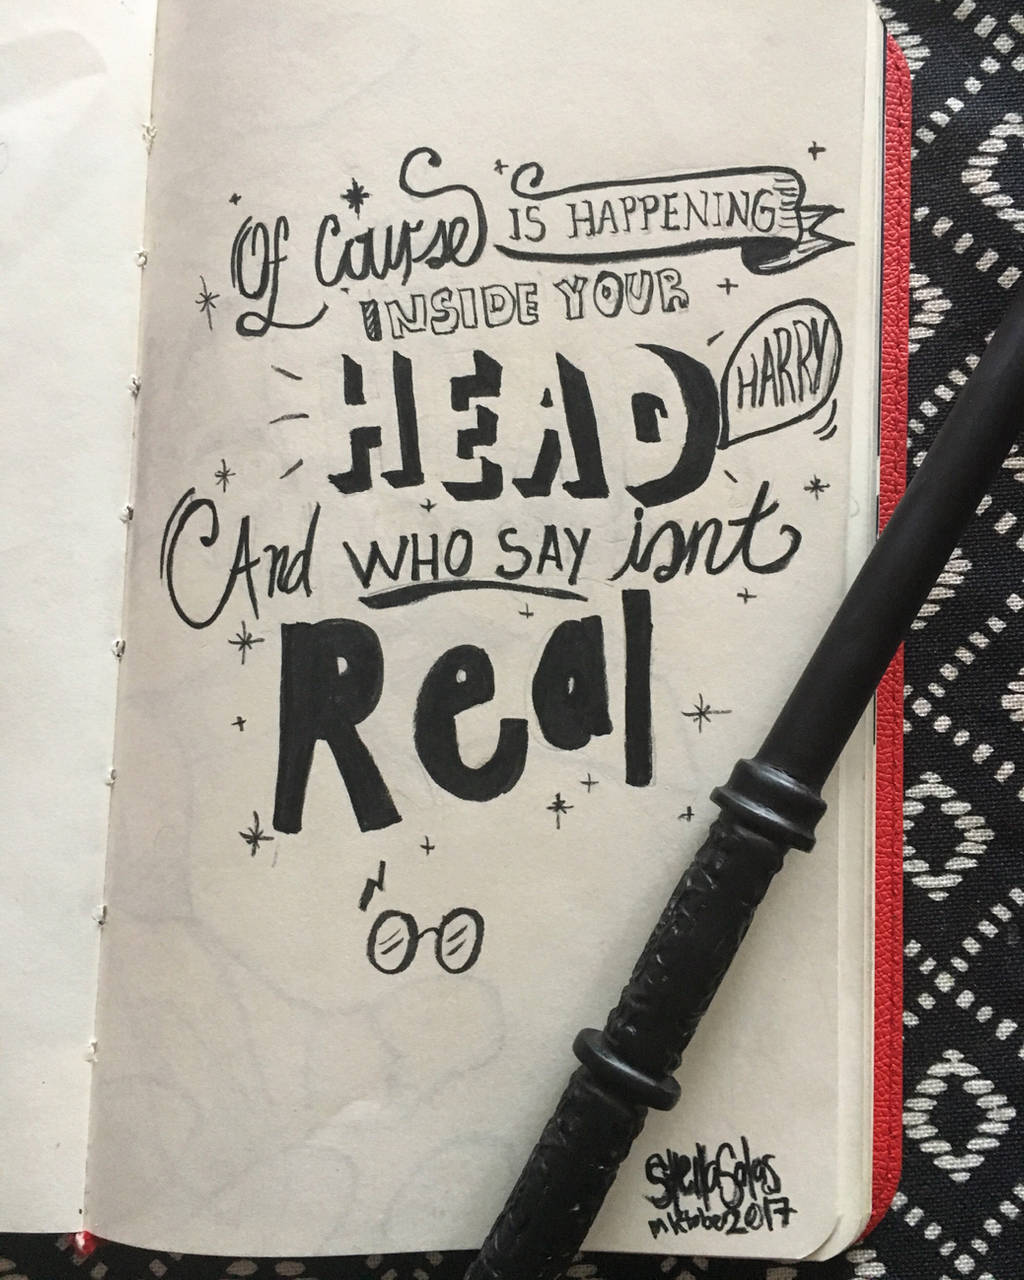 Of Course IS HAPPENING
INSIDE YOUR
HEAD HARRY
And WHO SAY isnt
Real
2017